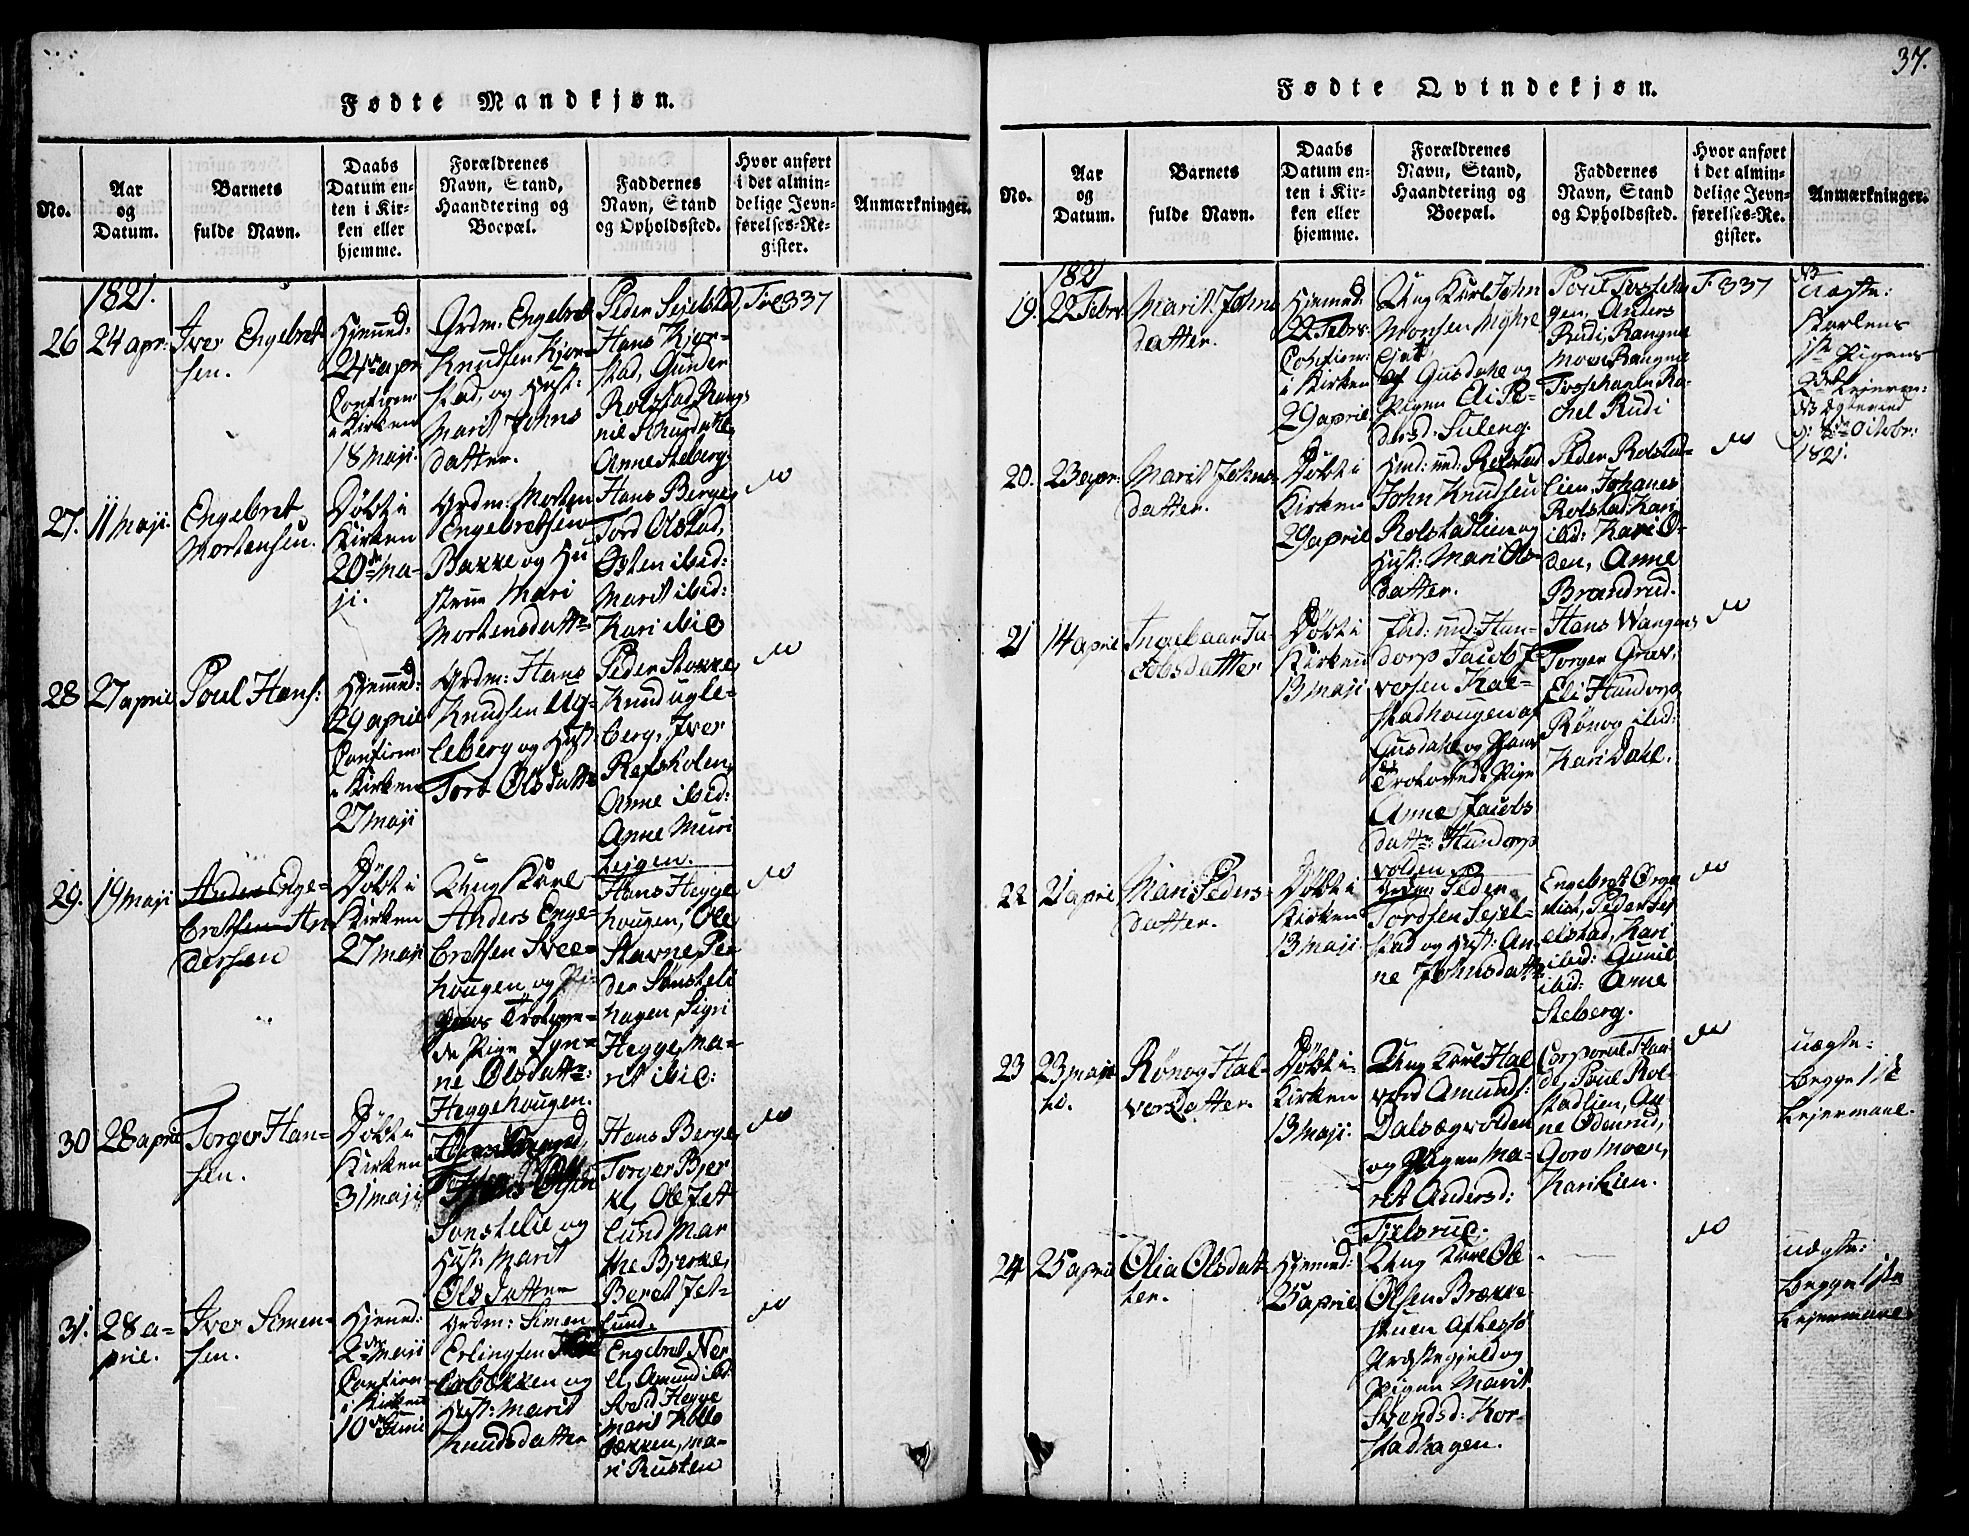 37.
Fødte Mandkjøn.
No.
Aar
og
Datum.
Barnets
fulde Navn.
Daabs
Datum en-
ten i Kir-
ken eller
hjemme.
Forældrenes
Navn, Stand,
Haandtering og
Boepæl.
Faddernes
Navn, Stand
og Opholdssted.
Hvor anført
i det almin-
delige Jevn-
førelses-Re-
gister.
Anmærkninger.
1821.
26
24 apr:
Iver Engebret
sen.
Hjemmed:
24de apr
Confirm:
i Kirken
18 Maji.
Grdm: Engebret
Knudsen Kjør-
stad, og Hust:
Marit Johns
datter.
Peder Sejelstad,
Hans Kjør-
stad, Gunder
Rolstad, Rang-
nil
Anne Steberg.
Fol 337
27.
11 Maji.
Engebret
Mortensen.
Døbt i
Kirken
20de Ma-
ji.
Grdm: Morten
Engebretsen
Bakke og Hu
struе Mari
Mortensdattr
Hans Berge,
Tord Olstad,
Østen ibid:
Marit ibid:
Kari ibid
do
28
27 april
Poul Hans:
Hjemmed:
29 april
Confirm:
i Kirken
27 Maji
Grdm: Hans
Knudsen Ug-
leberg og Hust:
Tore Olsdattr
Peder Stokke,
Knud Ugle-
berg, Iver
Refskolen,
Anne ibid:
Anne Muri
teigen.
do
29.
19 Maji
Ander Enge-
bretsen An
dersen
Døbt i
Kirken
27 Maji
Ung Karl
Anders Enge-
bretsen Svee-
hougen og Pi-
gens Trolove-
de Pige Syn-
ne Olsdattr:
Heggehougen.
Hans Hegge
hougen, Ole
Stavne, Pe-
der Sønsteli
hagen, Sigri
Hegge, Ma-
rit ibid:
do
30
28 april
Torger Han-
sen.
Døbt i
Kirken
31 Maji
Hans Olsen
Sønstelie og
Hust: Marit
Olsdatter
Hans Berge,
Torger Bjer
ke, Ole Jet
lund, Mar
the Bjerke,
Beret Jet-
lund.
do
31.
28 a-
pril.
Iver Simen-
sen.
Hjemmed:
2den Maji
Confirm
i Kirken
10de Juni
Grdm: Simen
Erlingsen
løbekken og
Hust: Marit
Knudsdatter
Engebret Ner
li, Amund ibd:
Svend Hegge
Marit Kollo
bækken, Ma-
ri Rusten
do
Fødte Qvindekjøn.
No.
Aar
og
Datum.
Barnets
fulde Navn.
Daabs
Datum en-
ten i Kir-
ken eller
hjemme.
Forældrenes
Navn, Stand,
Haandtering og
Boepæl.
Faddernes
Navn, Stand
og Opholdssted.
Hvor anført
i det almin-
delige Jevn-
førelses-Re-
gister.
Anmærkninger.
1821
19.
22 Febr.
Marit Johns
datter.
Hjemmed:
22 Febr.
Confirm:
i Kirken
29 april
Ung Karl John
Monsen Myhre
af Gusdahl og
Pigen Eli Pe-
dersd: Suleng.
Poul Tofteha-
gen, Anders
Rudi, Rangne
Moe, Rangne
Toftehagen, Ra-
chel Rudi
F. 337
Uægte:
Karlens
1ste Pigens
2det Lejerm:
1821.
20.
23 apr:
Marit Johns
datter.
Døbt i
Kirken
29 april
Husd: und: Rolstad
John Knudsen
Rolstadlien og
Hust: Mari Ols-
datter.
Peder Rolstad-
lien, Johanes
Rolstad, Kari
ibid: Kari O-
den, Anne
Brandrud.
do
21
14 april
Ingebaar Ja-
cobsdatter
Døbt i
Kirken
13 Maji
Ind: und: Hun-
dorp Jacob I-
versen Kal-
stadhougen af
Gusdahl og Hans
Trolovede Pige
Anne Jacobs
datr: Hundorp
volden
Hans Wangen,
Torger Grav,
Eli Hundorp
Rønog ibid:
Kari Dahl.
do
22
21 april
Mari Peders-
datter.
Døbt i
Kirken
13 Maji
Grdm: Peder
Tordsen Sejel-
stad og Hust: An-
ne Johnsdattr
Engebret Øvre
, Peder Sej
elstad, Kari
ibid: Gunil
ibid: Anne
Steberg.
do
23
23 Maji
Rønog Hal-
vorsdatter.
Døbt i
Kirken
13 Maji.
Ung Karl Hal
vord Amunds:
Dalsægvolden
og Pigen Ma-
rit Andersd:
Tjelsrud.
Corporal Flaa-
de, Poul Rol-
stadlien, An-
ne Odenrud,
Goro Moen,
Kari Lien.
do
uægte:
begge 1ste
Lejermaal.
24
25 april
Olia Olsdat-
ter.
Hjemmed:
25 april
Ung Karl Ole
Olsen Brække
stuen af Lessø
Præstegjeld og
Pigen Marit
Svendsd: Kor-
stadhagen.
do
uægte:
begge 1ste
Lejermaal.